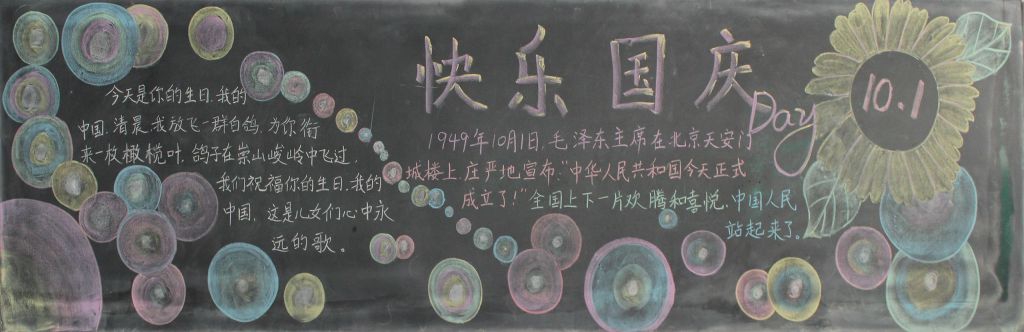 今天是你的生日,我的
中国,清晨,我放飞一群白鸽,为你衔
来一枚橄榄叶,鸽子在崇山峻岭中飞过,
我们祝福你的生日,我的
中国,这是儿女们心中永
远的歌。
快乐国庆
Day
10.1
1949年10月1日,毛泽东主席在北京天安门
城楼上庄严地宣布:“中华人民共和国今天正式
成立了!”全国上下一片欢腾和喜悦,中国人民
站起来了。